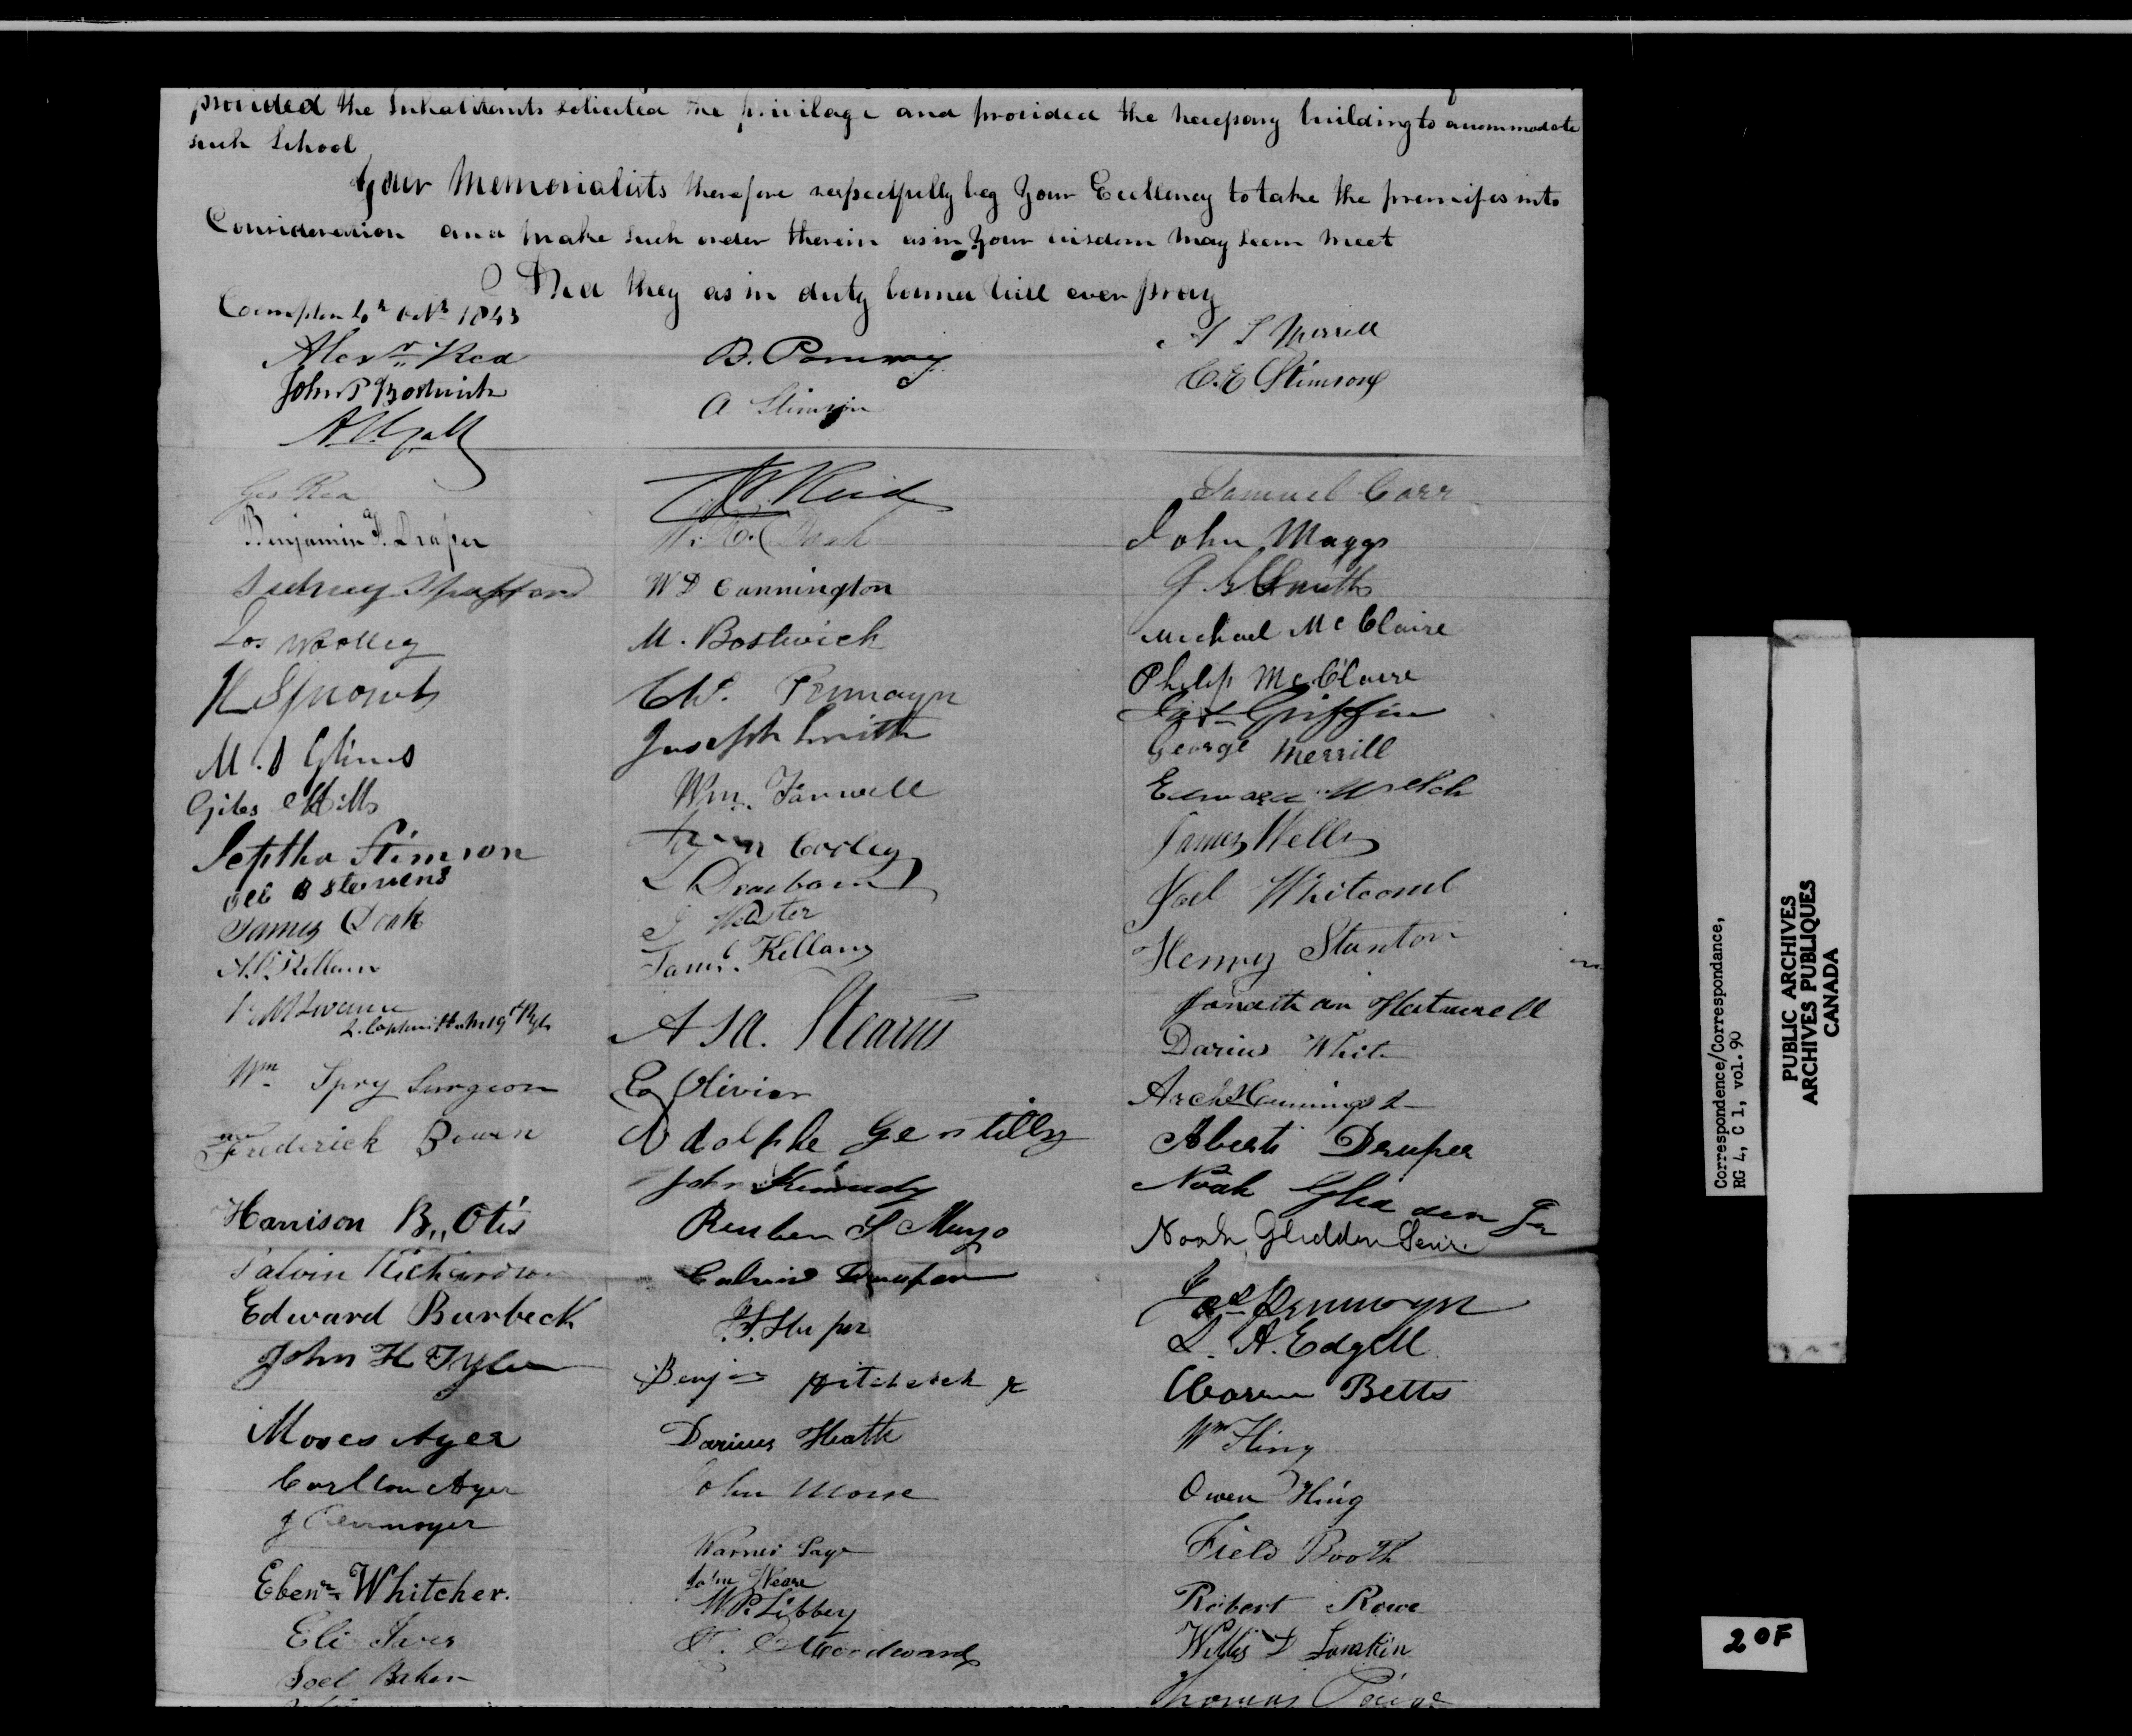 provided the Inhabitants solicited the privilage and provided the necessary building to accommodate
such School
Your Memorialists therefore respectfully beg Your Excellency to take the premises into
Consideration and make such order therein as in Your wisdom may seem meet
And they as in duty bound will ever pray
Compton Octr 1843
A S Merrell
Alexr Rea
B. Pomroy
C. E Stimson
John P Bostwick
A Stimson
Geo Rea
Reid
Samuel Carr
Benjamin F. Draper
John Maggs
Sidney Spafford
W D Cunnington
G. S Smith
Jos Woolley
M. Bostwick
Michael Mc Claire
Philip Mc Claire
Chs. Pennoyer
Jas Griffin
Joseph Smith
George Merrill
M. Glines
Wm. Farwell
Edward Welch
Giles Mills
Corley
James Wells
Jeptha Stimson
Dearborn
B Stevens
Joel Whitcomb
James Doak
Saml. Kellam
Henry Stanton
A. Kellam
Asa. Stearns
Jonathan Hartwell
Darius White
Wm Spry Surgeon
Olivier
Archd Cummings
Frederick Bowen
Adolphe Gentilly
Alberti Draper
John Kennedy
Noah Glidden Jr
Harrison B,, Otis
Reuben S Munro
Noah Glidden Senr.
Calvin Richardson
Calvin Draper
Jas Pennoyer
Edward Burbeck
L. A. Edgell
John H Tyler
Benjn Hitchcock Jr
Warren Betts
Moses Ayer
Darius Heath
Wm Hing
Carlton Ayer
John Morse
Owen Hing
J Pennoyer
Warner Page
Field Booth
Ebenr Whitcher.
John Weare
Robert Rowe
W P. Libbey
Eli Ives
Woodward
Willis D Lamkin
Joel Baker
Thomas Paige
Correspondence/Correspondance,
RG 4, C 1, vol. 90
PUBLIC ARCHIVES
ARCHIVES PUBLIQUES
CANADA
2 OF